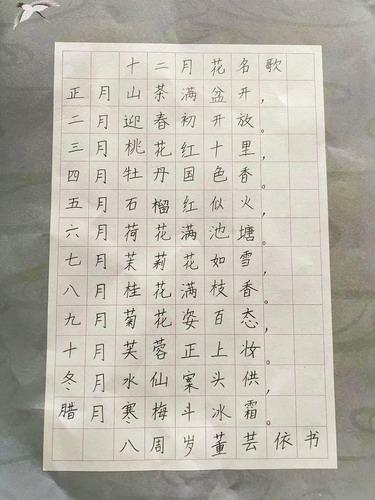 十二月花名歌
正月山茶满盆开，
二月迎春初开放。
三月桃花红十里，
四月牡丹国色香。
五月石榴红似火，
六月荷花满池塘。
七月茉莉花如雪，
八月桂花满枝香。
九月菊花姿百态，
十月芙蓉正上妆。
冬月水仙案头供，
腊月寒梅斗冰霜。
八周岁董芸依书